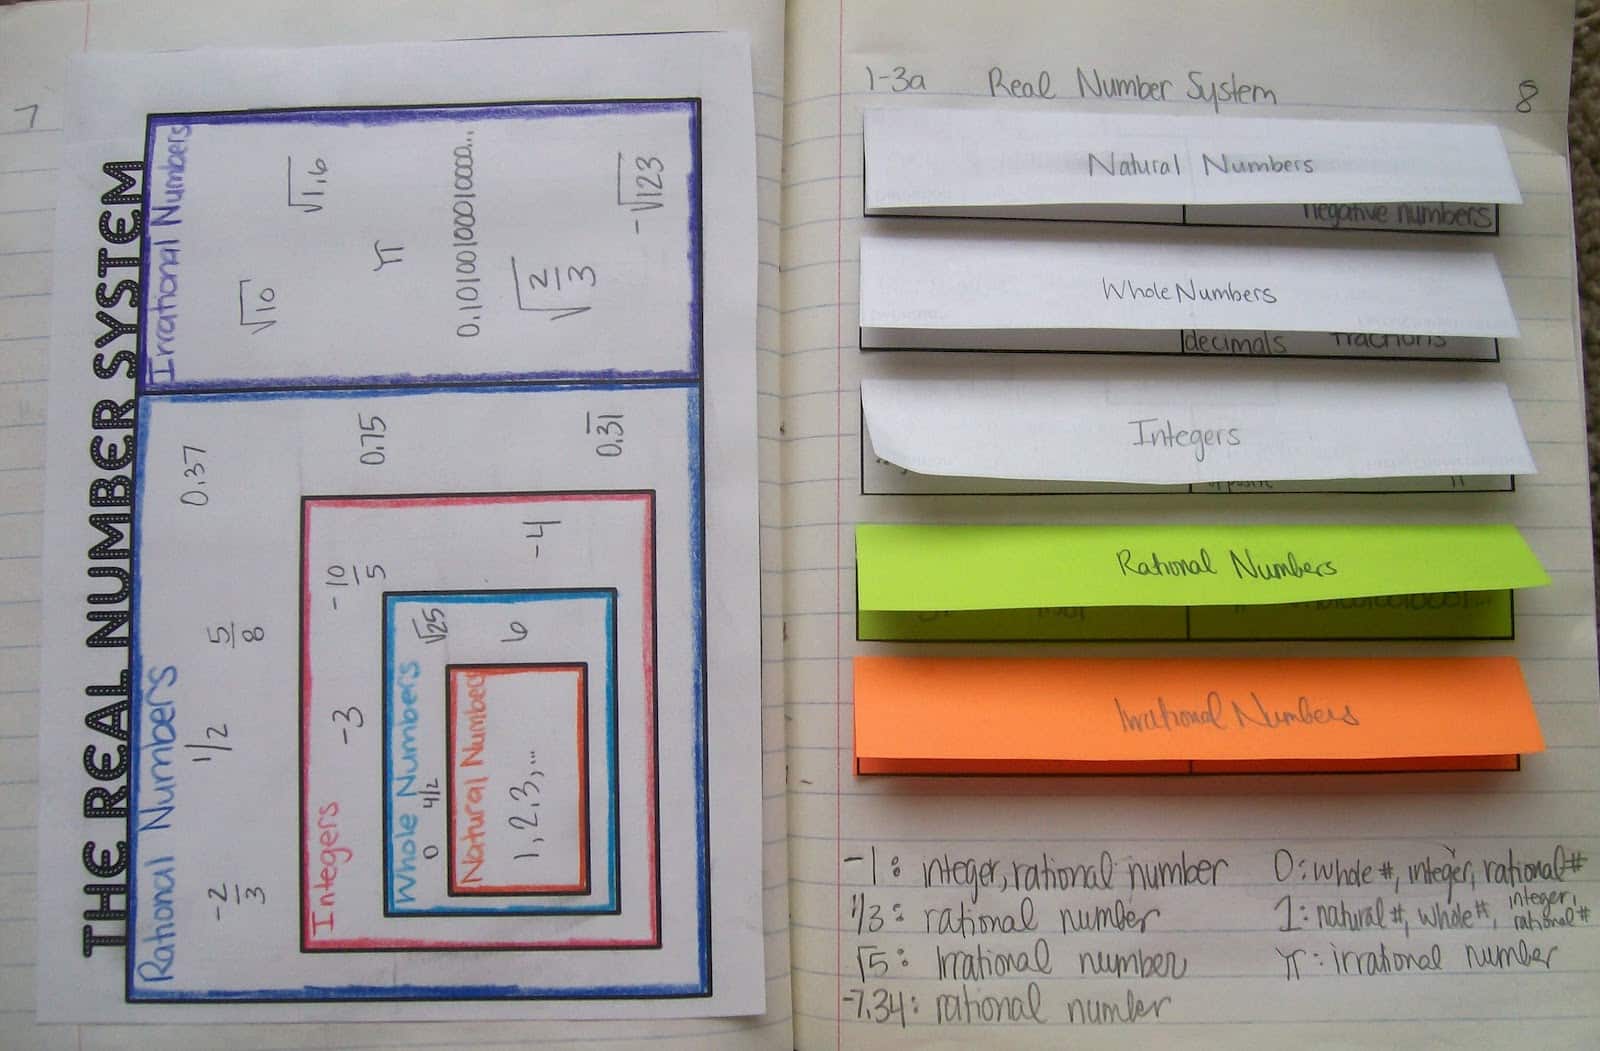 7
THE REAL NUMBER SYSTEM
Rational Numbers
-2/3
1/2
5/8
0.37
0.75
0.3̅1̅
Integers
-3
-10/5
-4
Whole Numbers
0
4/2
√25
6
Natural Numbers
1, 2.3,...
Irrational Numbers
√10
√1.6
π
0.10100100010000...
√2/3
-√123
1-3a Real Number System 8
Natural Numbers
negative numbers
Whole Numbers
decimals fractions
Integers
Rational Numbers
Irrational Numbers
-1: integer, rational number
1/3: rational number
√5: Irrational number
-7.34: rational number
0: whole #, integer, rational #
1: natural #, whole #, integer, rational #
π: irrational number